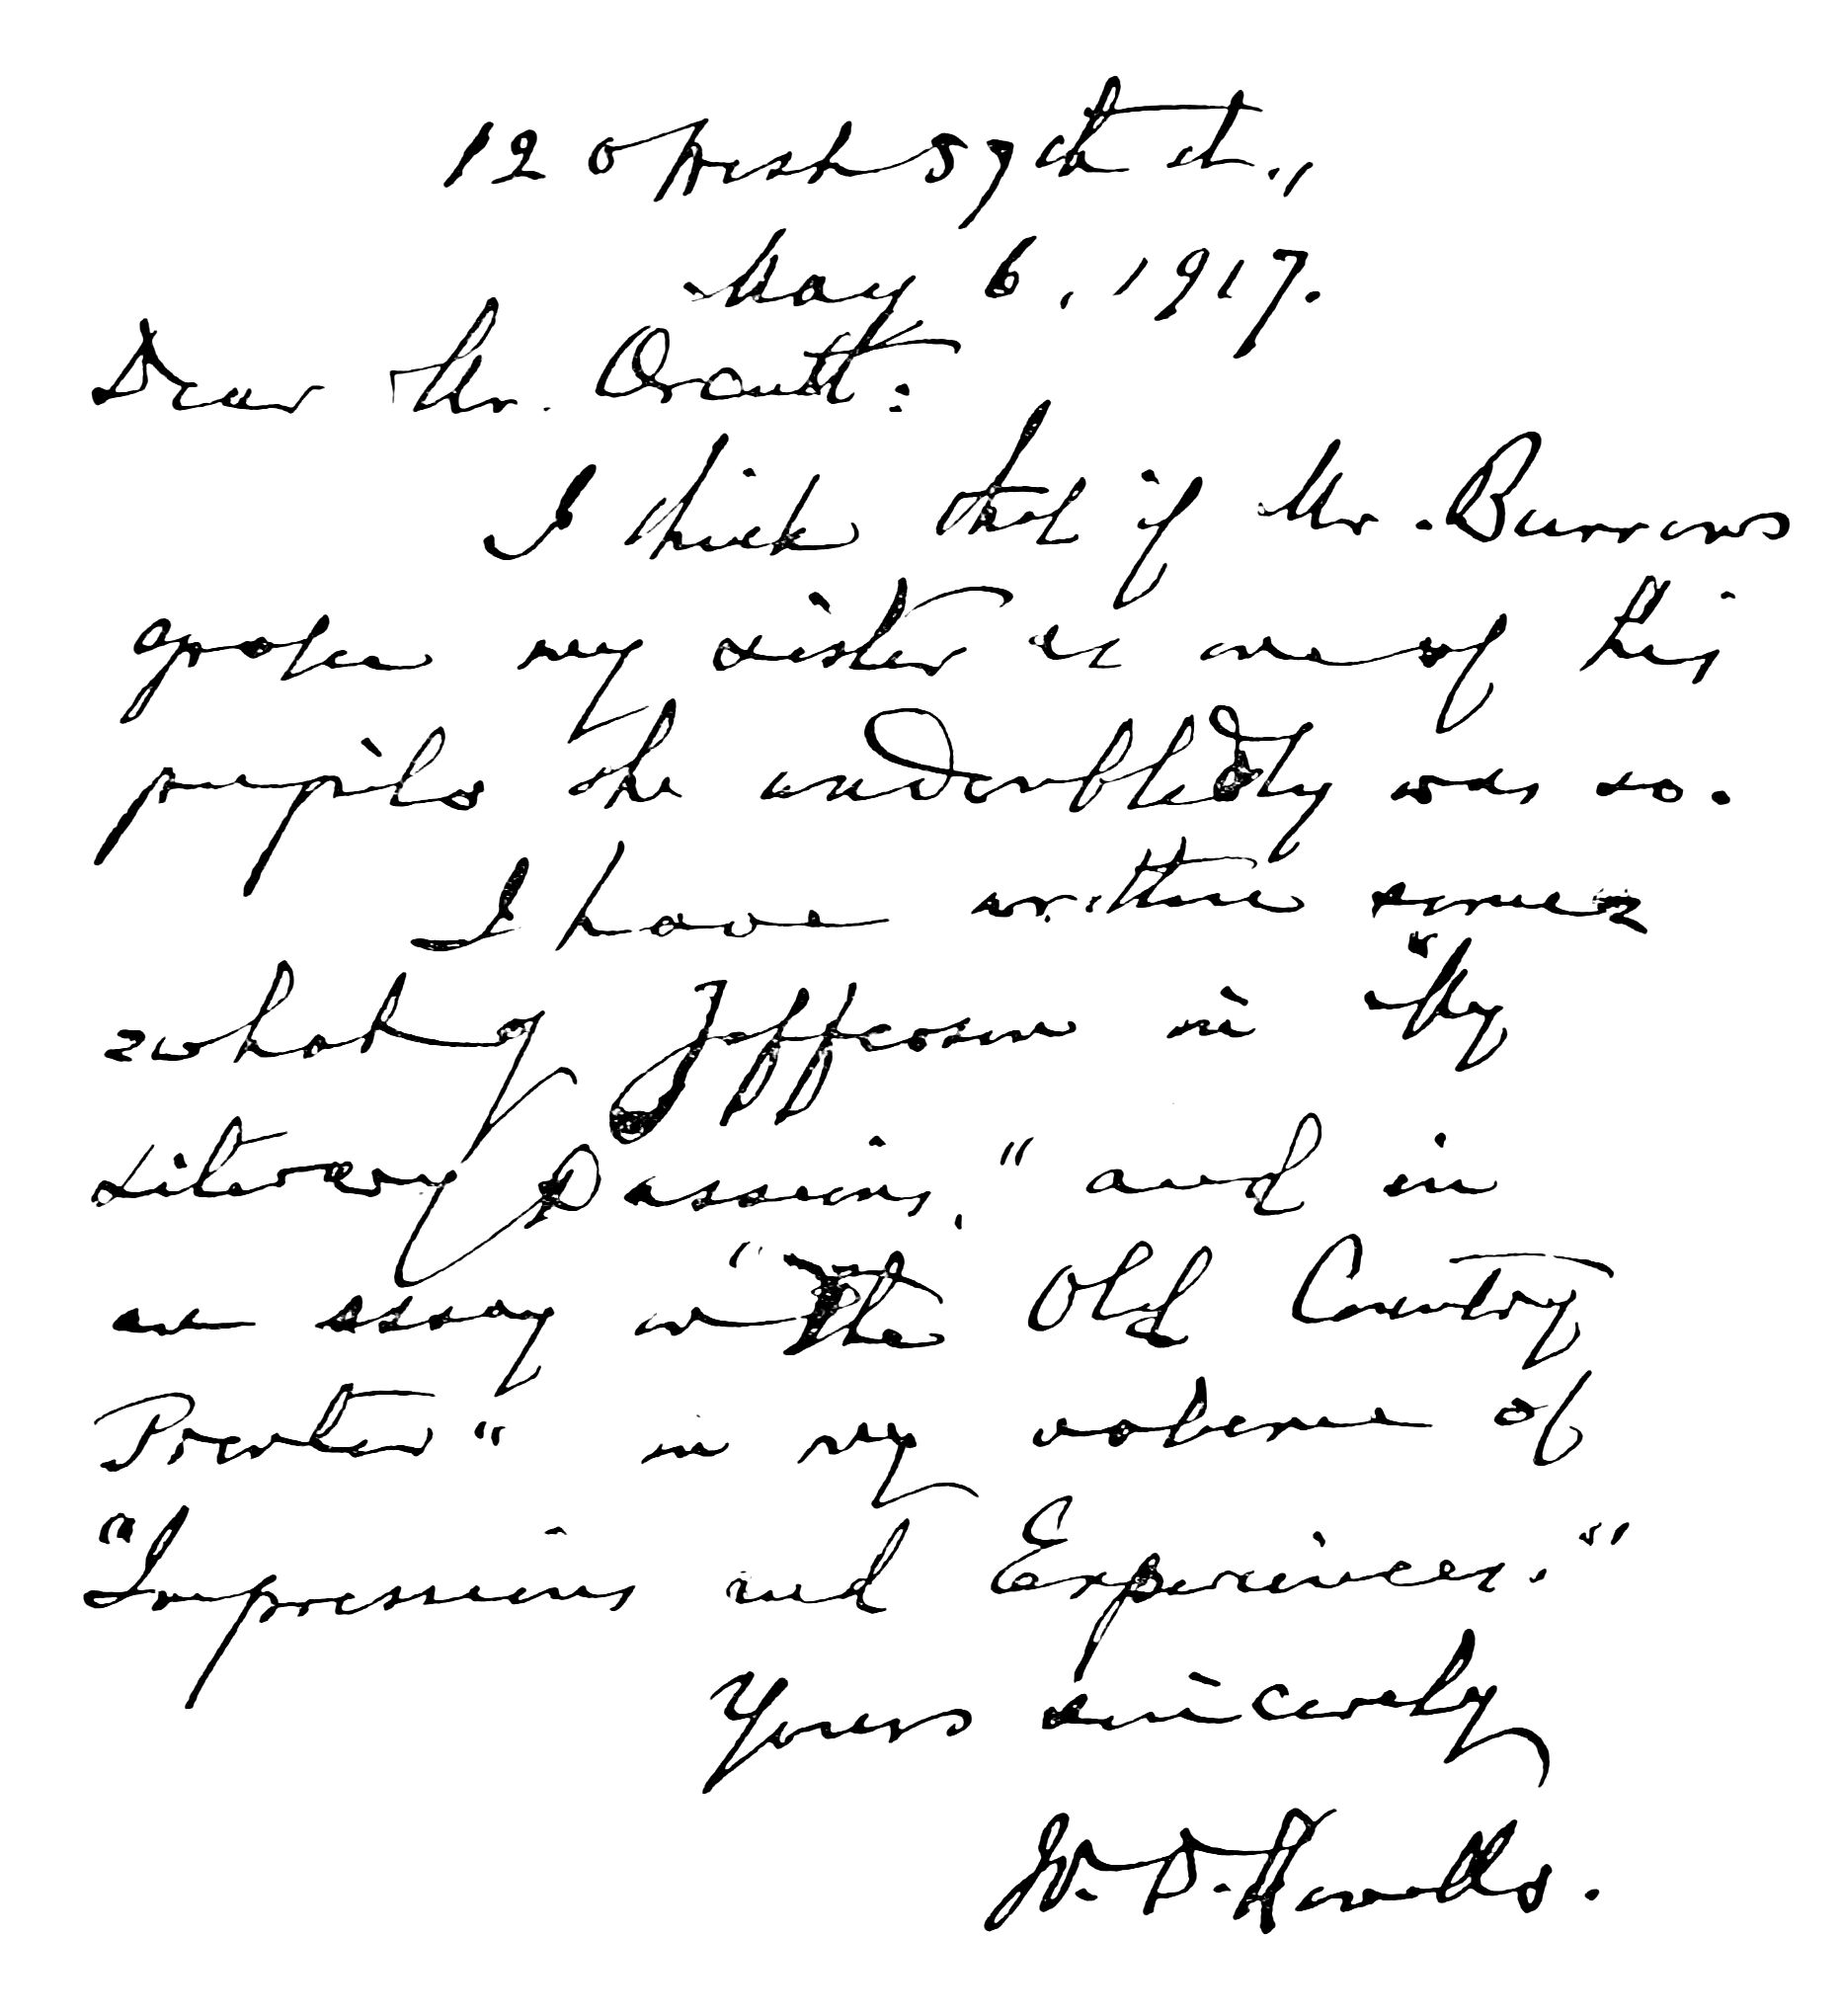 12
May 6, 1917.
Dear Mr.
I think that if Mr. Burrows
my sister as one of his
pupils she undoubtedly was so.
I have written
Jefferson in "My
Literary Passions," and in
an essay in "The Old Country
Printer" in my volume of
"Impressions and Experiences."
Yours sincerely
W. D. Howells.